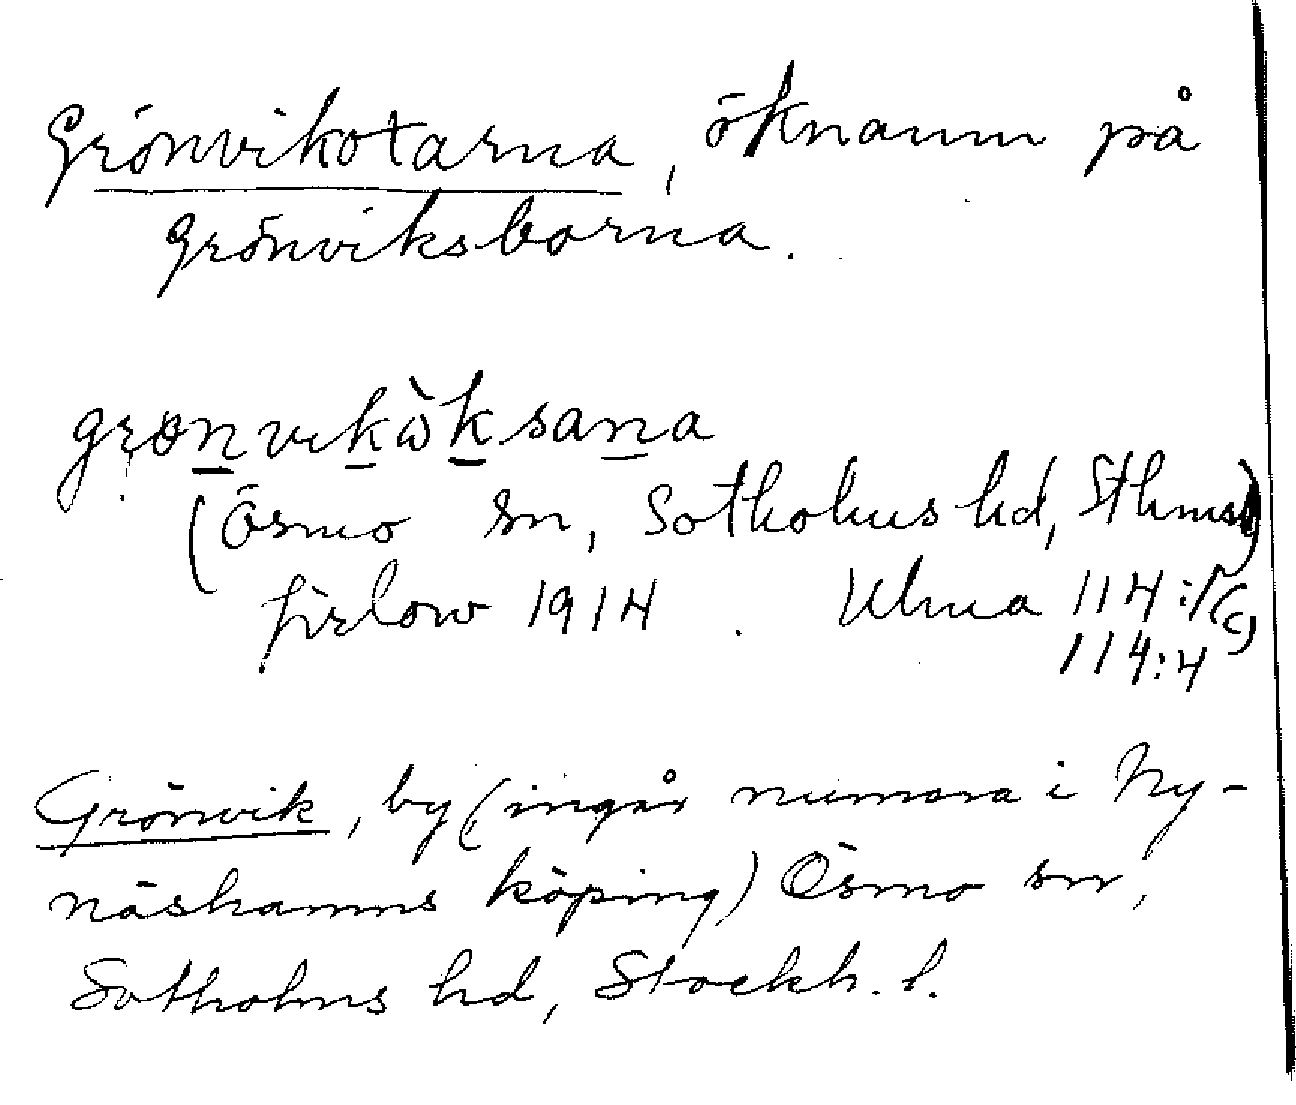 Grönvikotarna, öknamn på
Grönviksborna.
grönvikòksana
(Ösmo sn, Sotholms hd, Sthms)
Pirlow 1914. Ulma 114:
114:4
Grönvik, by (ingår numera i Ny-
näshamns köping) Ösmo sn,
Sotholms hd, Stockh. l.